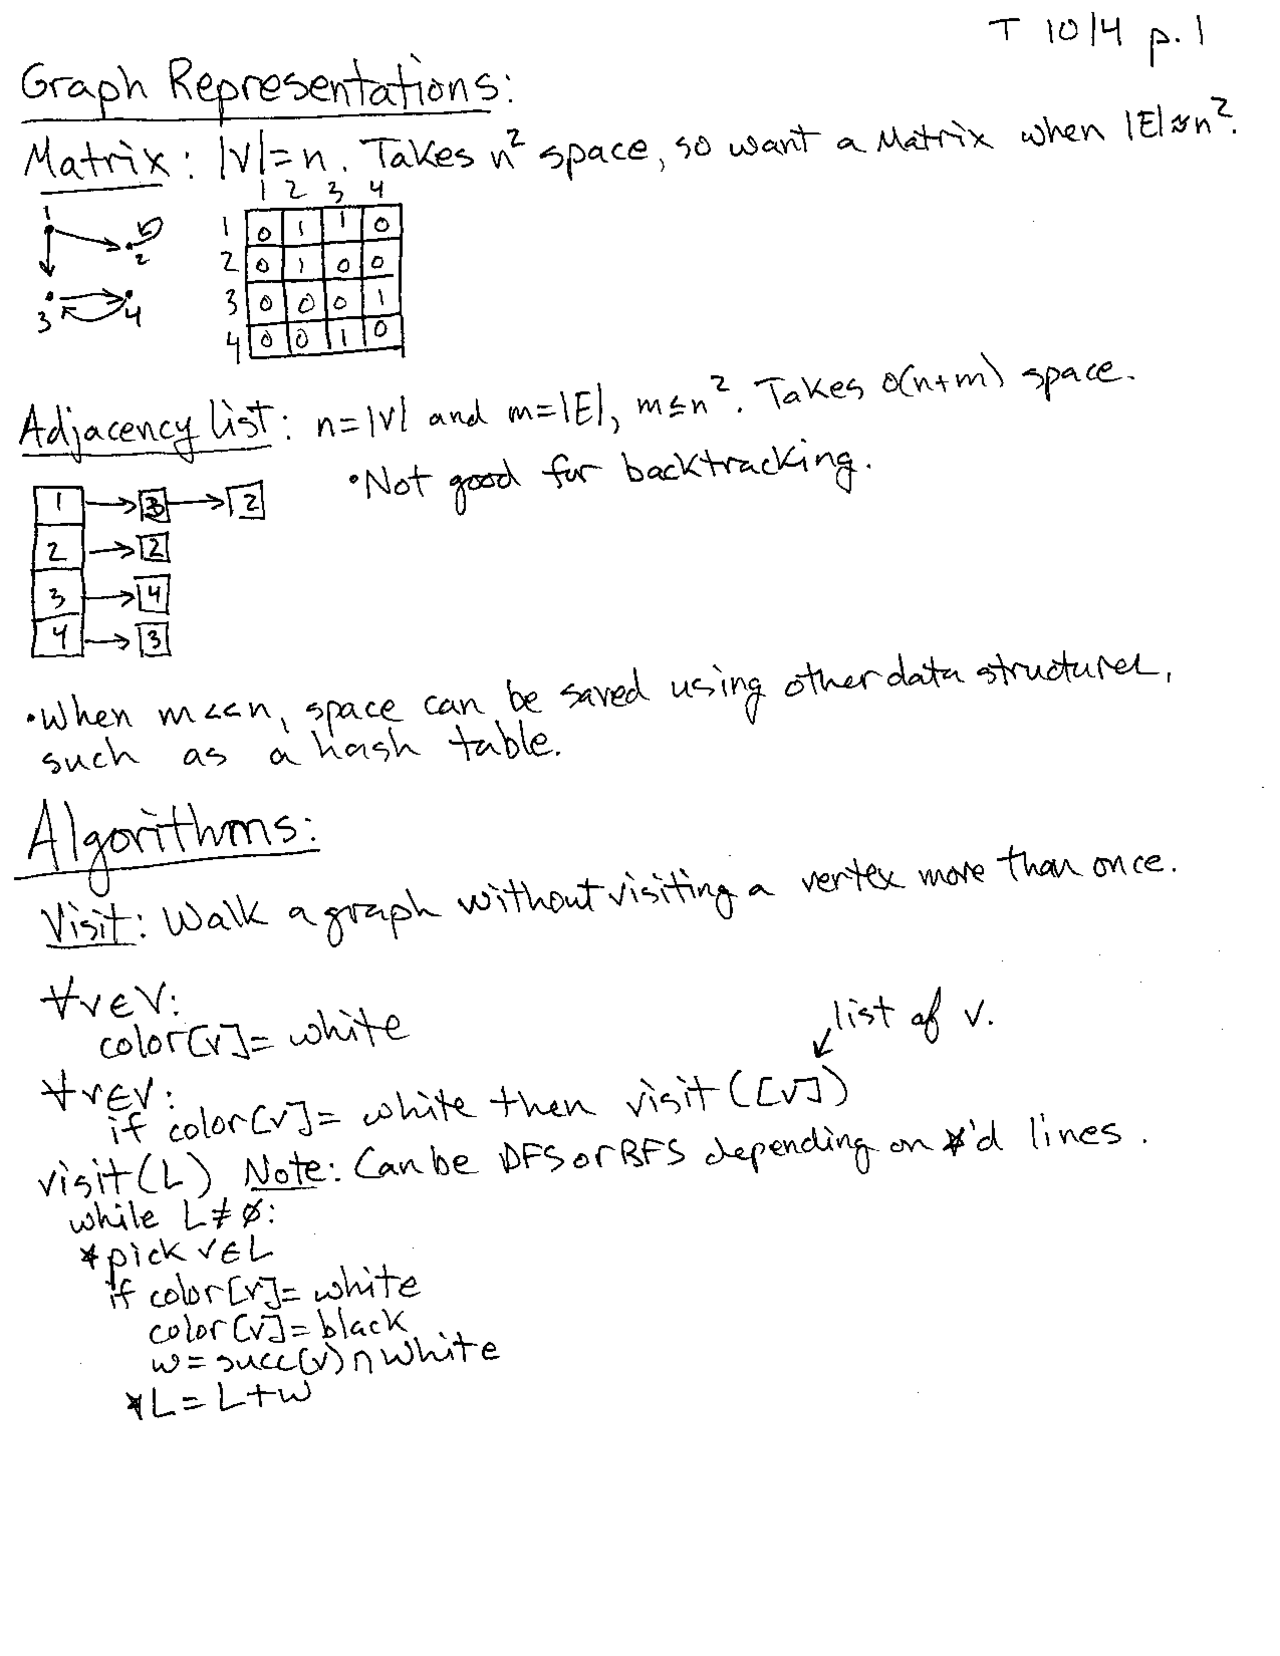 T 10/4 p.1
Graph Representations:
Matrix: |V|=n. Takes n² space, so want a Matrix when |E|≈n².
1
2
3 4
1 2 3 4
1 0 1 1 0
2 0 1 0 0
3 0 0 0 1
4 0 0 1 0
Adjacency list: n=|V| and m=|E|, m≤n². Takes O(n+m) space.
•Not good for backtracking.
1 → 3 → 2
2 → 2
3 → 4
4 → 3
•When m<<n, space can be saved using other data structures,
such as a hash table.
Algorithms:
Visit: Walk a graph without visiting a vertex more than once.
∀v∈V:
color[v]= white
list of v.
∀v∈V:
if color[v]= white then visit([v])
visit(L) Note: Can be DFS or BFS depending on *'d lines.
while L≠∅:
*pick v∈L
if color[v]= white
color[v]=black
w=succ(v)∩white
*L=L+w